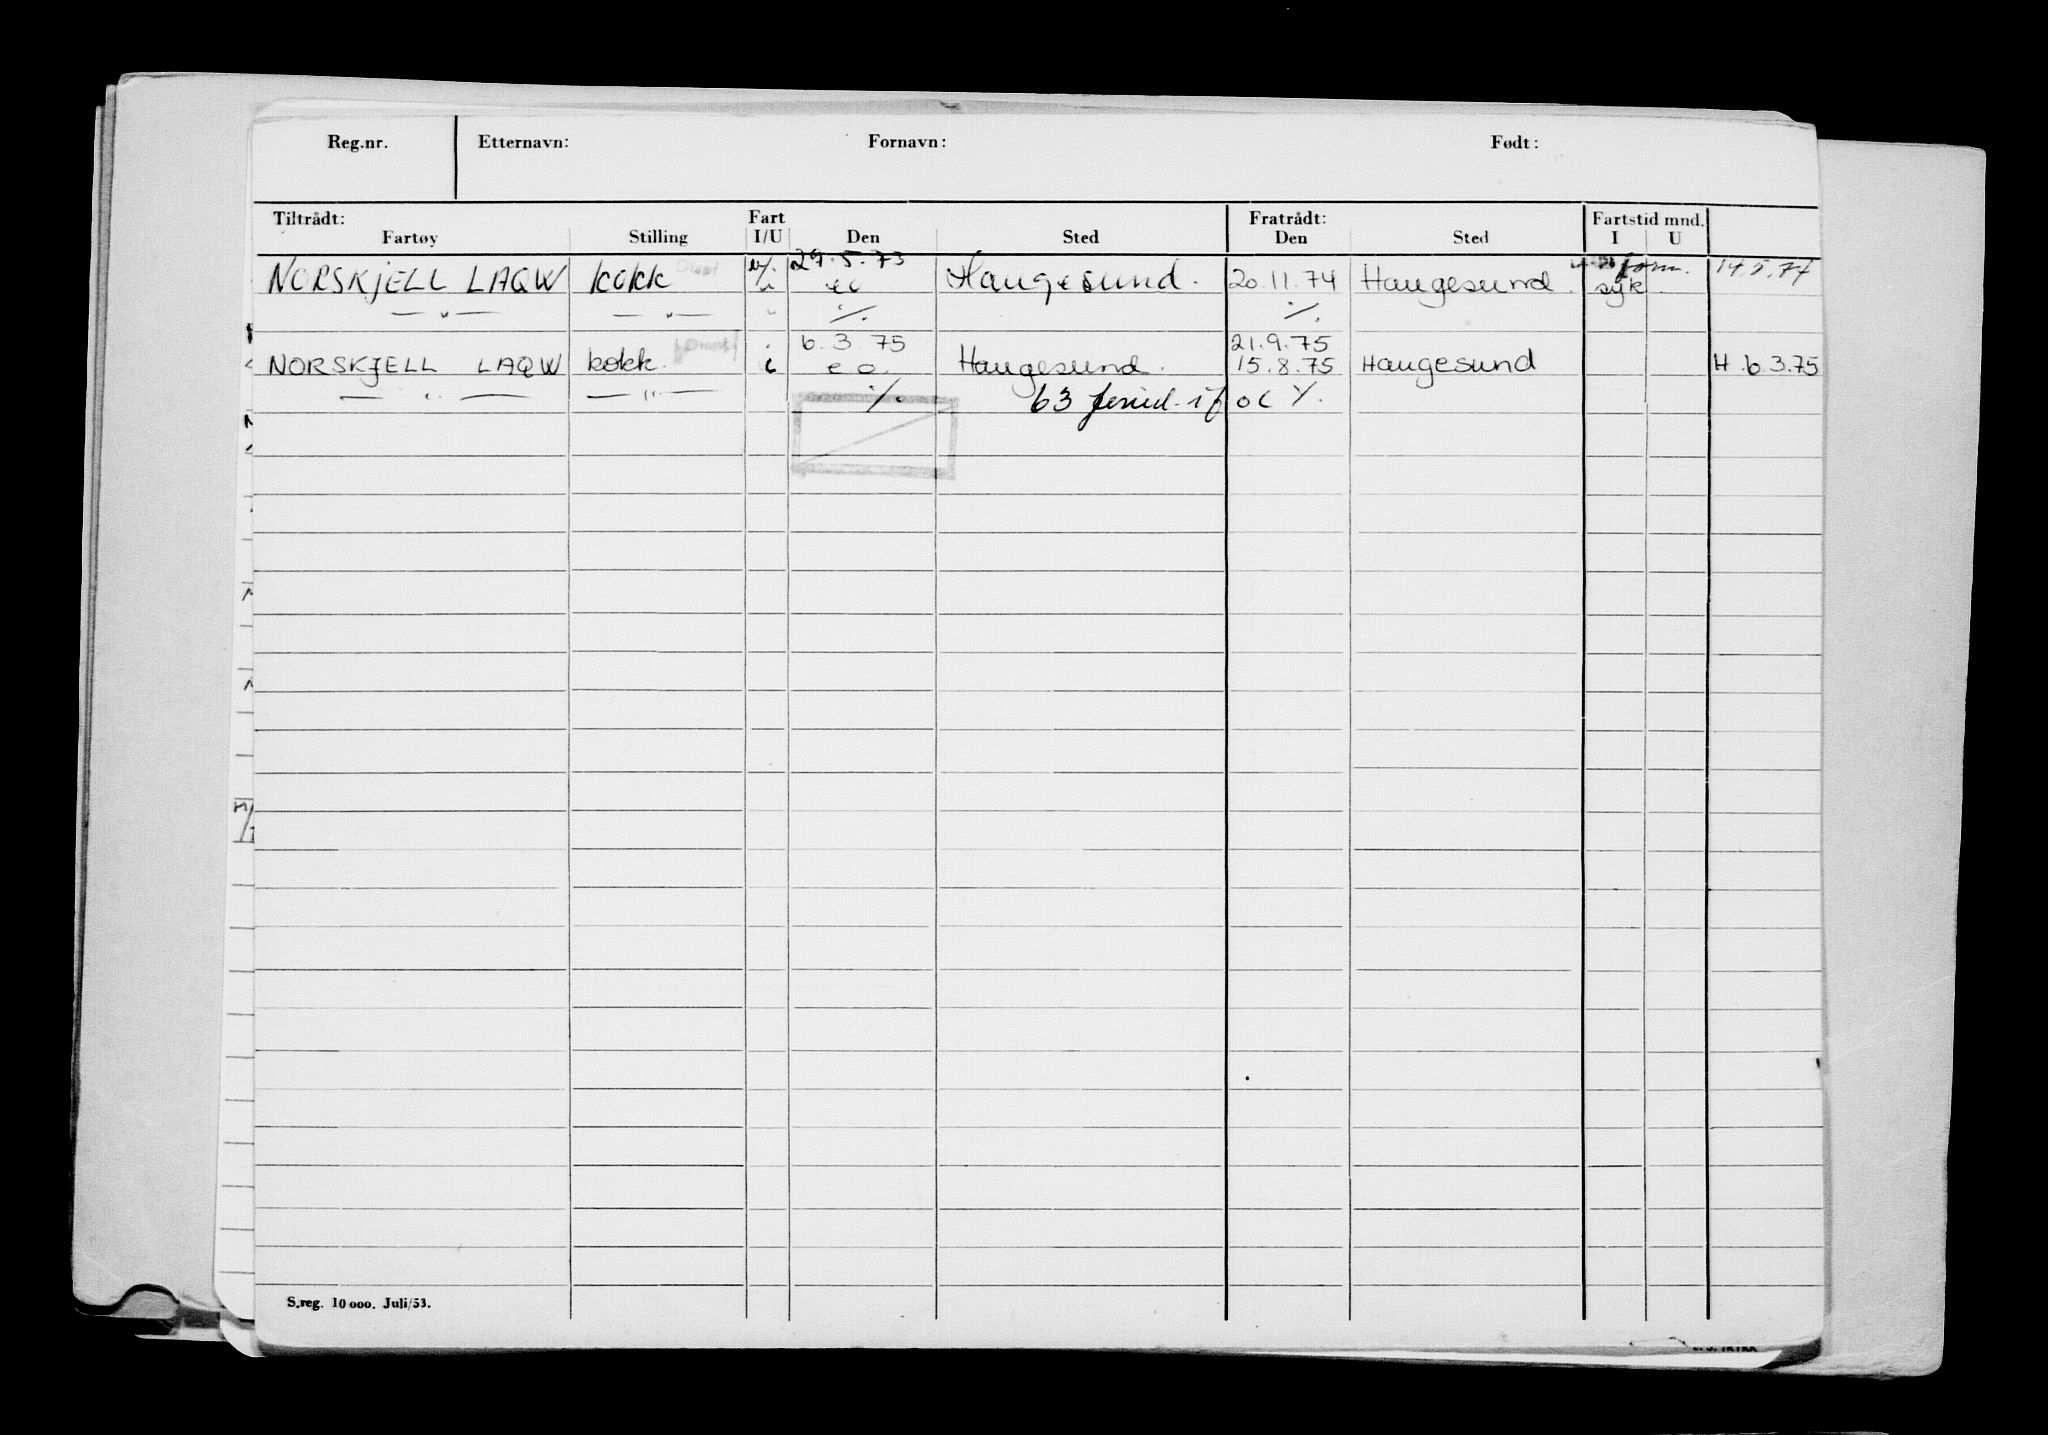 Reg.nr. Etternavn: Fornavn: Født:
Tiltrådt: Fart Fratrådt: Fartstid mnd.
Fartøy Stilling I/U Den Sted Den Sted I U
29.5.73 14.5.74
NORSKJELL LAQW kokk eo Haugesund. 20.11.74 Haugesund. syk
— " — — " — " ·/. ·/.
6.3.75 21.9.75
NORSKJELL LAQW kokk. i eo. Haugesund. 15.8.75 Haugesund H. 6.3.75
— " — — " — ·/. 63
S.reg. 10 000. Juli/53.